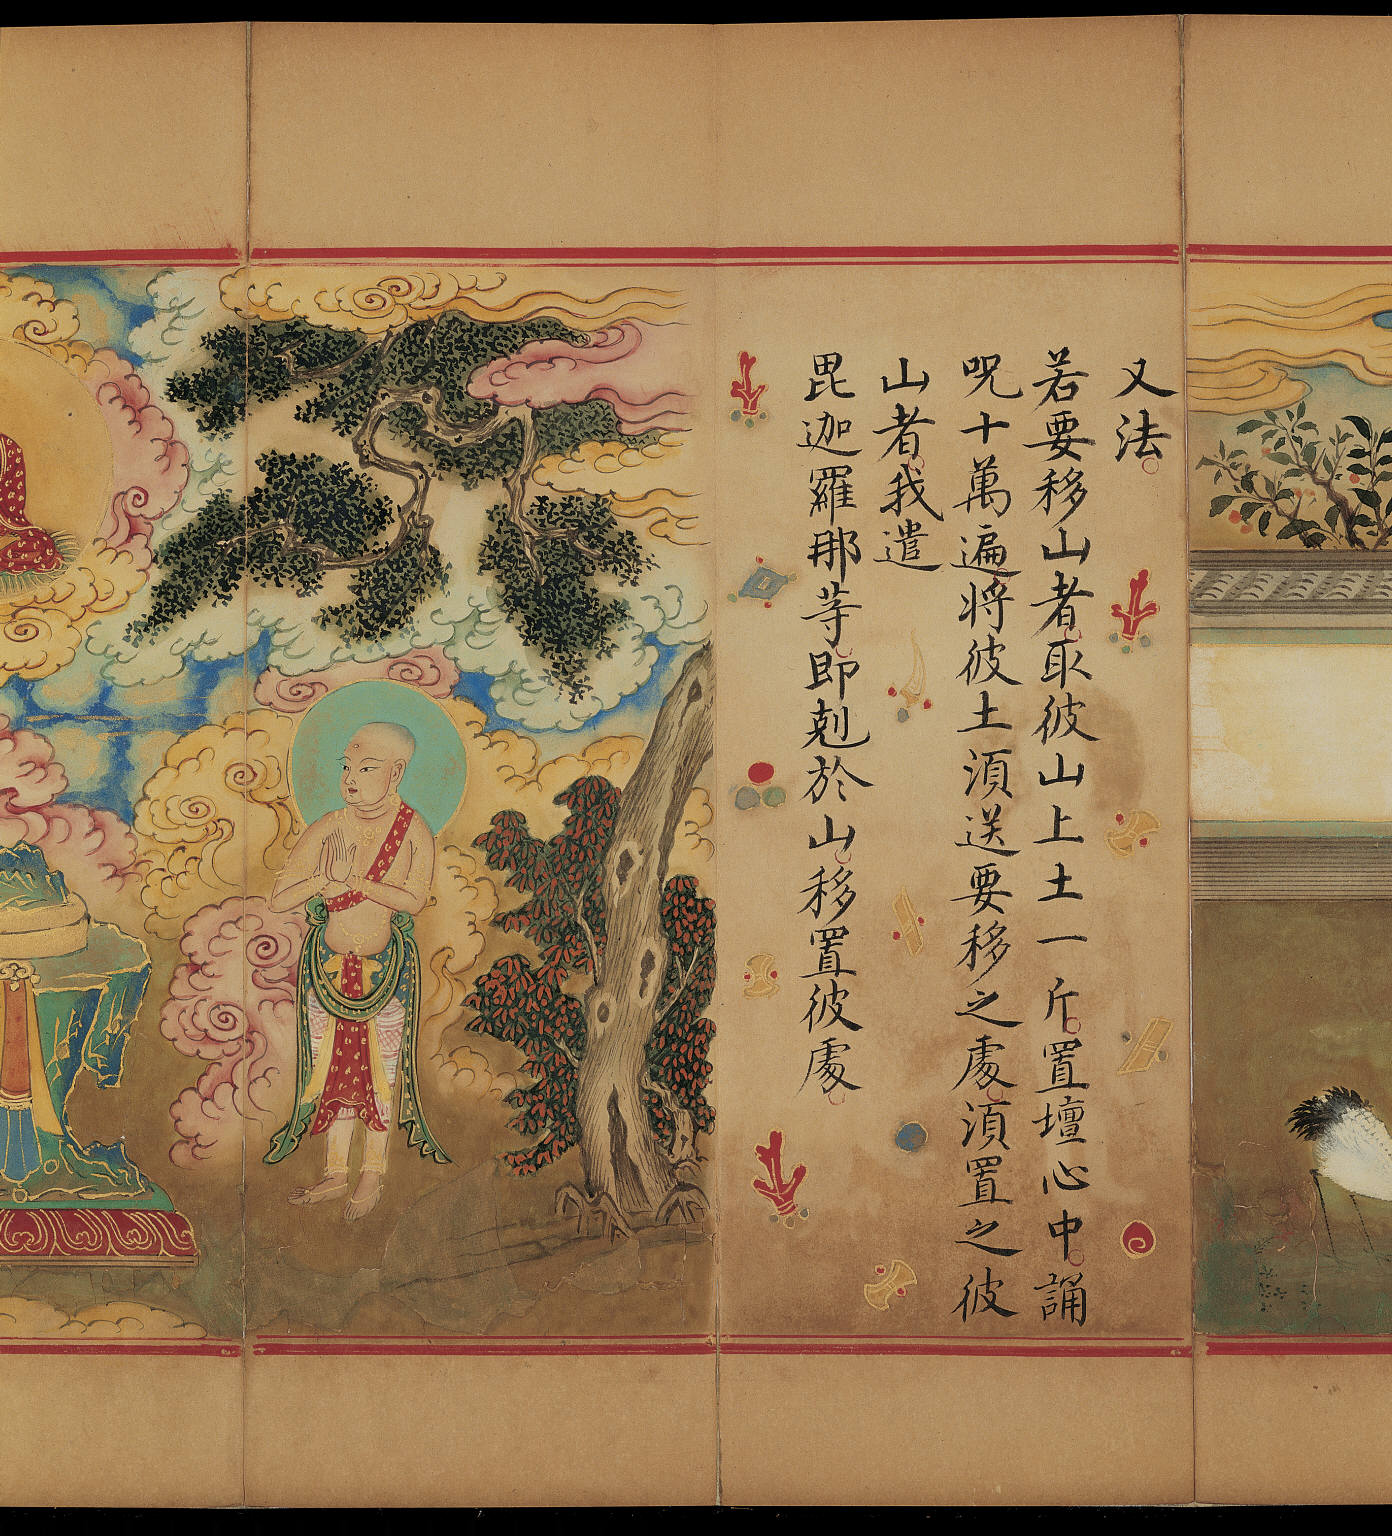 又法
若要移山者取彼山上土一斤置壇心中誦
呪十萬遍將彼土須送要移之處須置之彼
山者我遣
毘迦羅那等即剋於山移置彼處